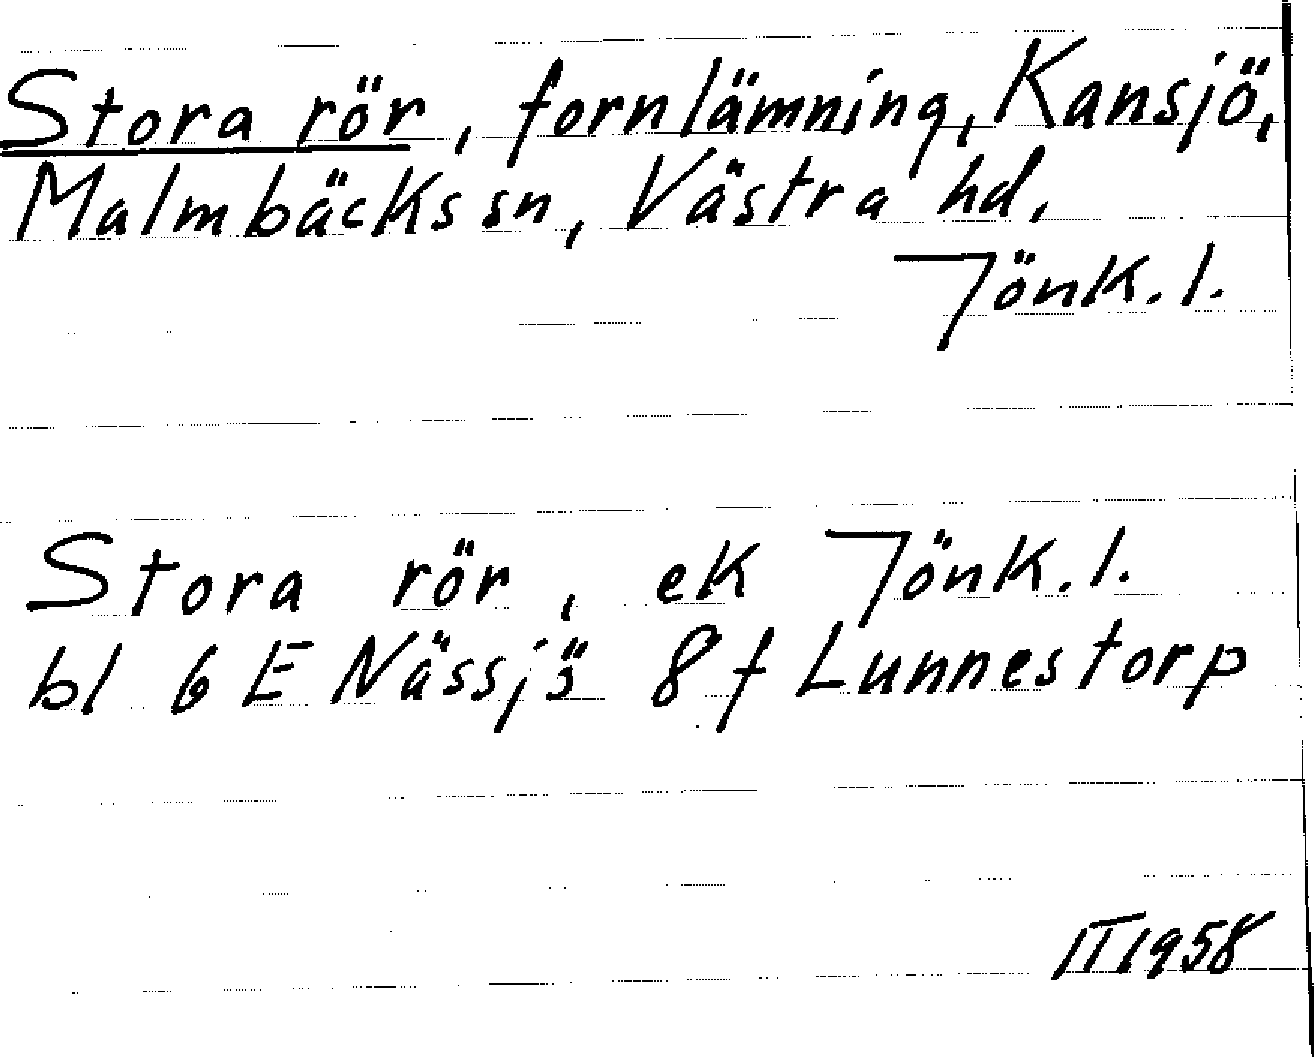 Stora rör, fornlämning, Kansjö,
Malmbäcks sn, Västra hd,
Jönk. l.
Stora rör, ek Jönk. l.
bl 6 E Nässjö 8 f Lunnestorp
IT 1958